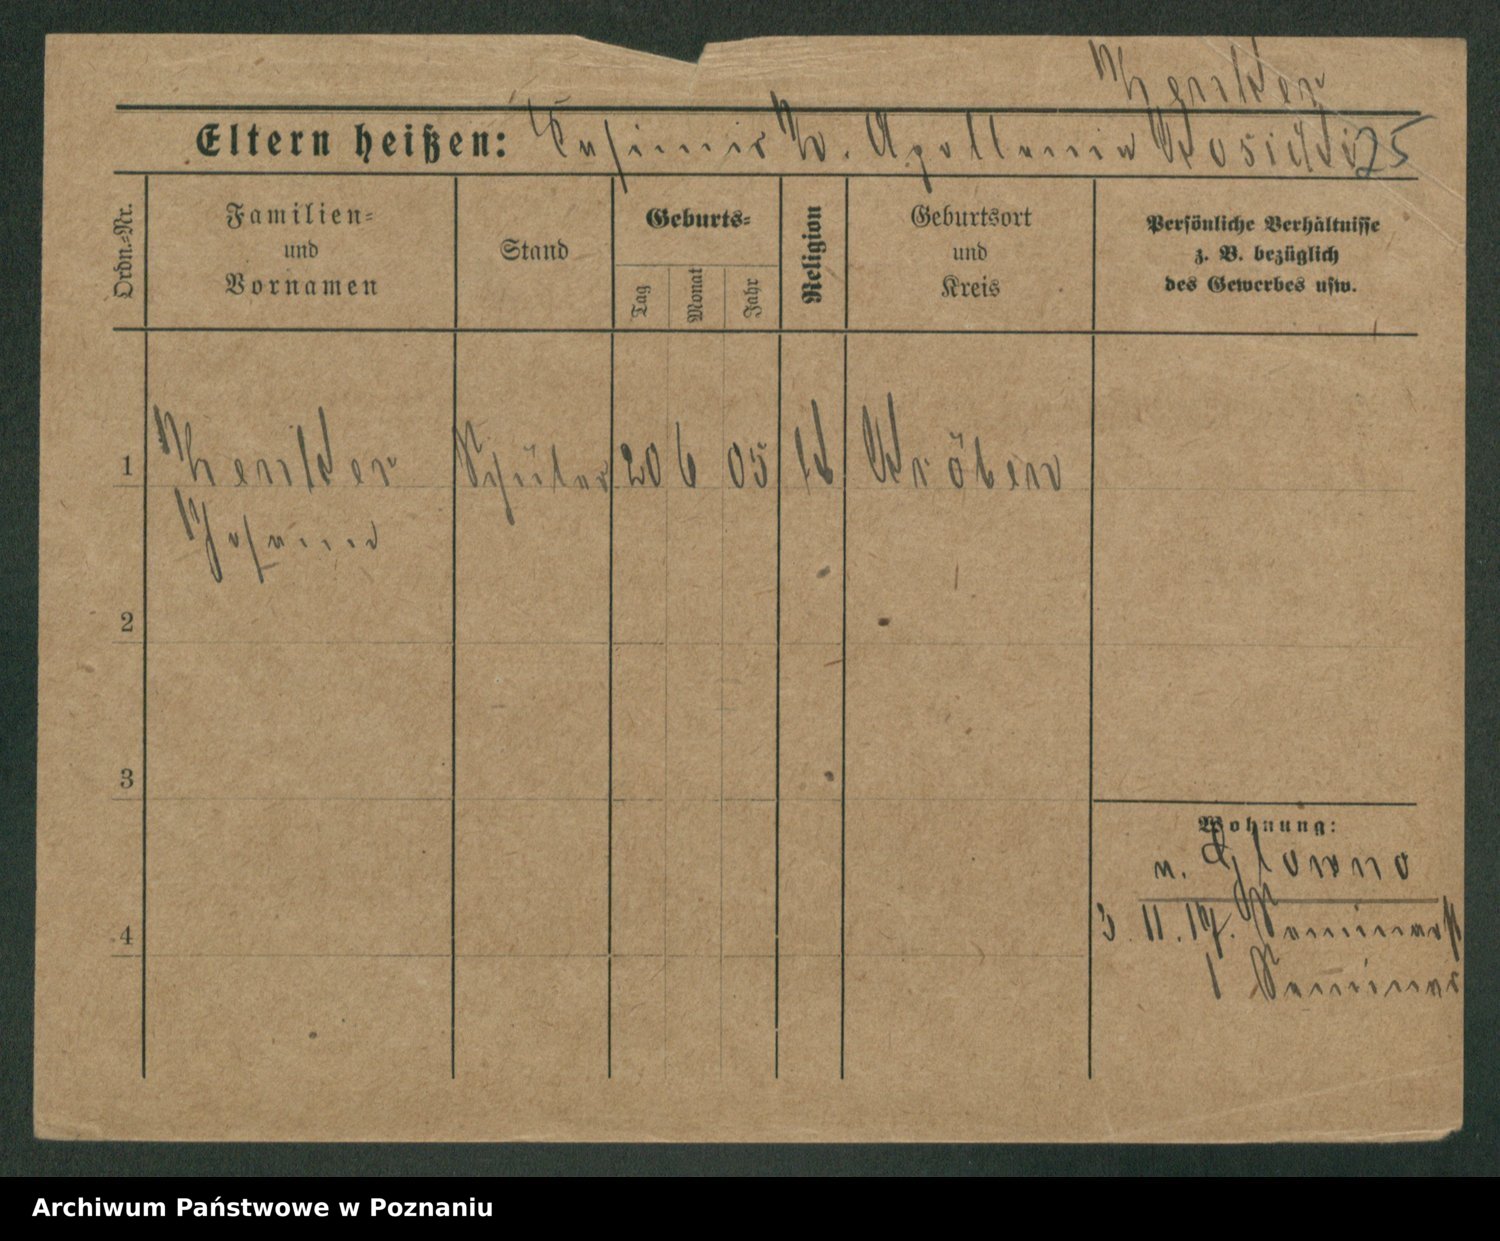 Eltern heißen: Casimir u. Apollonia
25
Ordn.=Nr.
Familien=
und
Vornamen
Stand
Geburts=
Tag
Monat
Jahr
Religion
Geburtsort
und
Kreis
Persönliche Verhältnisse
z. B. bezüglich
des Gewerbes usw.
1
Schüler 20 6 05 Kröben
Johann
2
3
Wohnung:
n. Glowno
4
3. 11. 17. Seminarst
1 Seminar
Archiwum Państwowe w Poznaniu